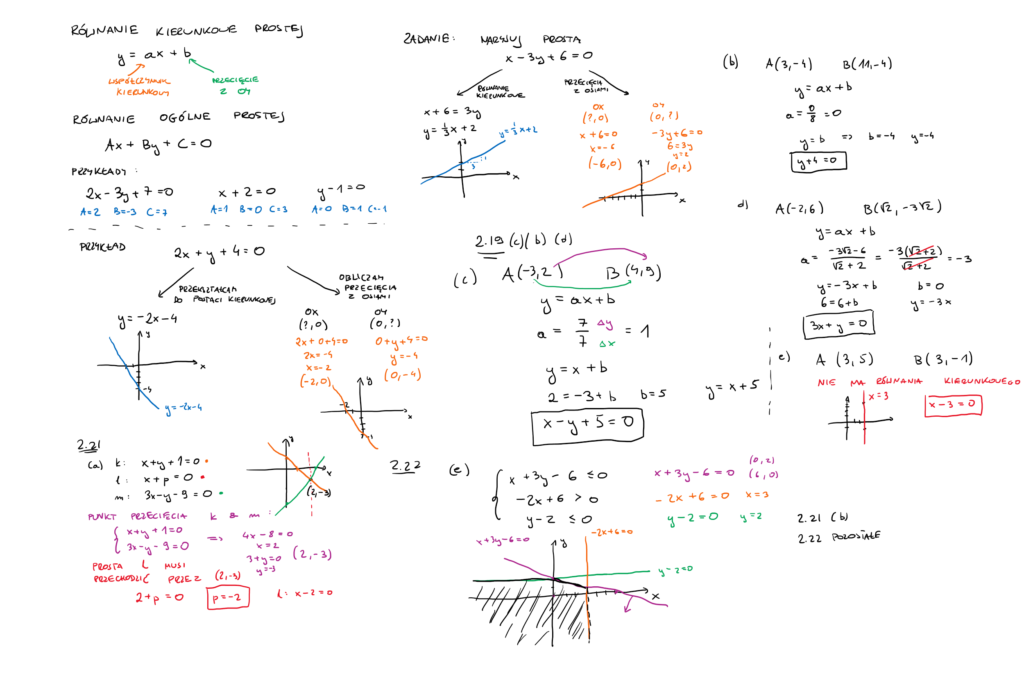 RÓWNANIE KIERUNKOWE PROSTEJ
y = ax + b
WSPÓŁCZYNNIK KIERUNKOWY
PRZECIĘCIE Z OY
RÓWNANIE OGÓLNE PROSTEJ
Ax + By + C = 0
PRZYKŁADY:
2x - 3y + 7 = 0 x + 2 = 0 y - 1 = 0
A=2 B=-3 C=7 A=1 B=0 C=3 A=0 B=1 C=-1
PRZYKŁAD
2x + y + 4 = 0
PRZEKSZTAŁCAM DO POSTACI KIERUNKOWEJ
OBLICZAM PRZECIĘCIA Z OSIAMI
y = -2x - 4
y
x
-4
y = -2x-4
OX OY
(?,0) (0,?)
2x + 0 + 4 = 0 0 + y + 4 = 0
2x = -4 y = -4
x = -2 (0, -4)
(-2, 0)
y
-2
x
-4
2.21
(a) k: x + y + 1 = 0
l: x + p = 0
m: 3x - y - 9 = 0
y
x
(2,-3)
PUNKT PRZECIĘCIA k & m:
x + y + 1 = 0
3x - y - 9 = 0
=> 4x - 8 = 0
x = 2
3 + y = 0
y = -3
(2, -3)
PROSTA l MUSI
PRZECHODZIĆ PRZEZ (2,-3)
2 + p = 0 p = -2 l: x - 2 = 0
ZADANIE: NARYSUJ PROSTĄ
x - 3y + 6 = 0
RÓWNANIE KIERUNKOWE
PRZECIĘCIA Z OSIAMI
x + 6 = 3y
y = 1/3 x + 2
y = 1/3 x + 2
y
x
OX OY
(?,0) (0,?)
x + 6 = 0 -3y + 6 = 0
x = -6 6 = 3y
y = 2
(-6, 0) (0, 2)
y
x
2.19 (c)(b)(d)
(c) A(-3, 2) B(4, 9)
y = ax + b
a = 7/7 Δy Δx = 1
y = x + b
2 = -3 + b b = 5 y = x + 5
x - y + 5 = 0
2.22 (e)
x + 3y - 6 ≤ 0
-2x + 6 > 0
y - 2 ≤ 0
x + 3y - 6 = 0 (0, 2) (6, 0)
-2x + 6 = 0 x = 3
y - 2 = 0 y = 2
x + 3y - 6 = 0
y
-2x + 6 = 0
y - 2 = 0
x
(b) A(3, -4) B(11, -4)
y = ax + b
a = 0/8 = 0
y = b => b = -4 y = -4
y + 4 = 0
d) A(-2, 6) B(√2, -3√2)
y = ax + b
a = (-3√2 - 6)/(√2 + 2) = -3(√2 + 2)/(√2 + 2) = -3
y = -3x + b b = 0
6 = 6 + b y = -3x
3x + y = 0
e) A (3, 5) B (3, -1)
NIE MA RÓWNANIA KIERUNKOWEGO
x = 3
x - 3 = 0
2.21 (b)
2.22 POZOSTAŁE